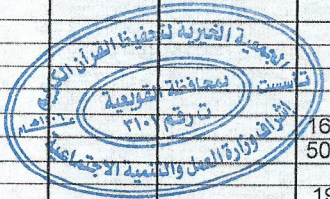 الجمعية الخيرية لتحفيظ القرآن الكريم
تأسست
بمحافظة القويعية
ت رقم ٣١٠١
اشراف وزارة العمل والتنمية الاجتماعية
16
50
19